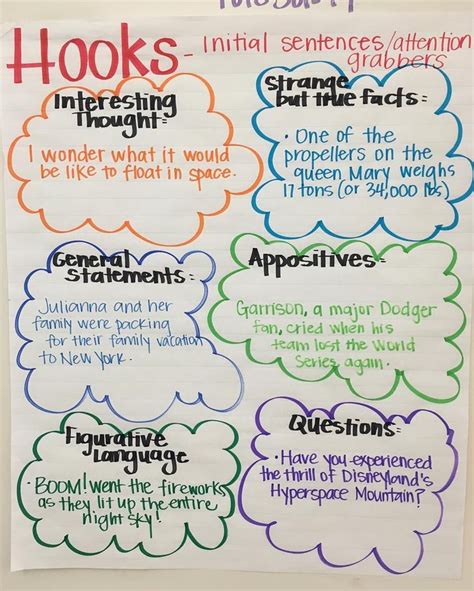 Hooks- Initial sentences/attention
grabbers
Interesting
Thought:
I wonder what it would
be like to float in space.
Strange
but true facts:
• One of the
propellers on the
queen Mary weighs
17 tons (or 34,000 lbs)
General
Statements:
Julianna and her
family were packing
for their family vacation
to New York.
Appositives:
Garrison, a major Dodger
fan, cried when his
team lost the World
Series again.
Figurative
Language
• BOOM! went the fireworks
as they lit up the entire
night sky!
Questions:
• Have you experienced
the thrill of Disneyland's
Hyperspace Mountain?